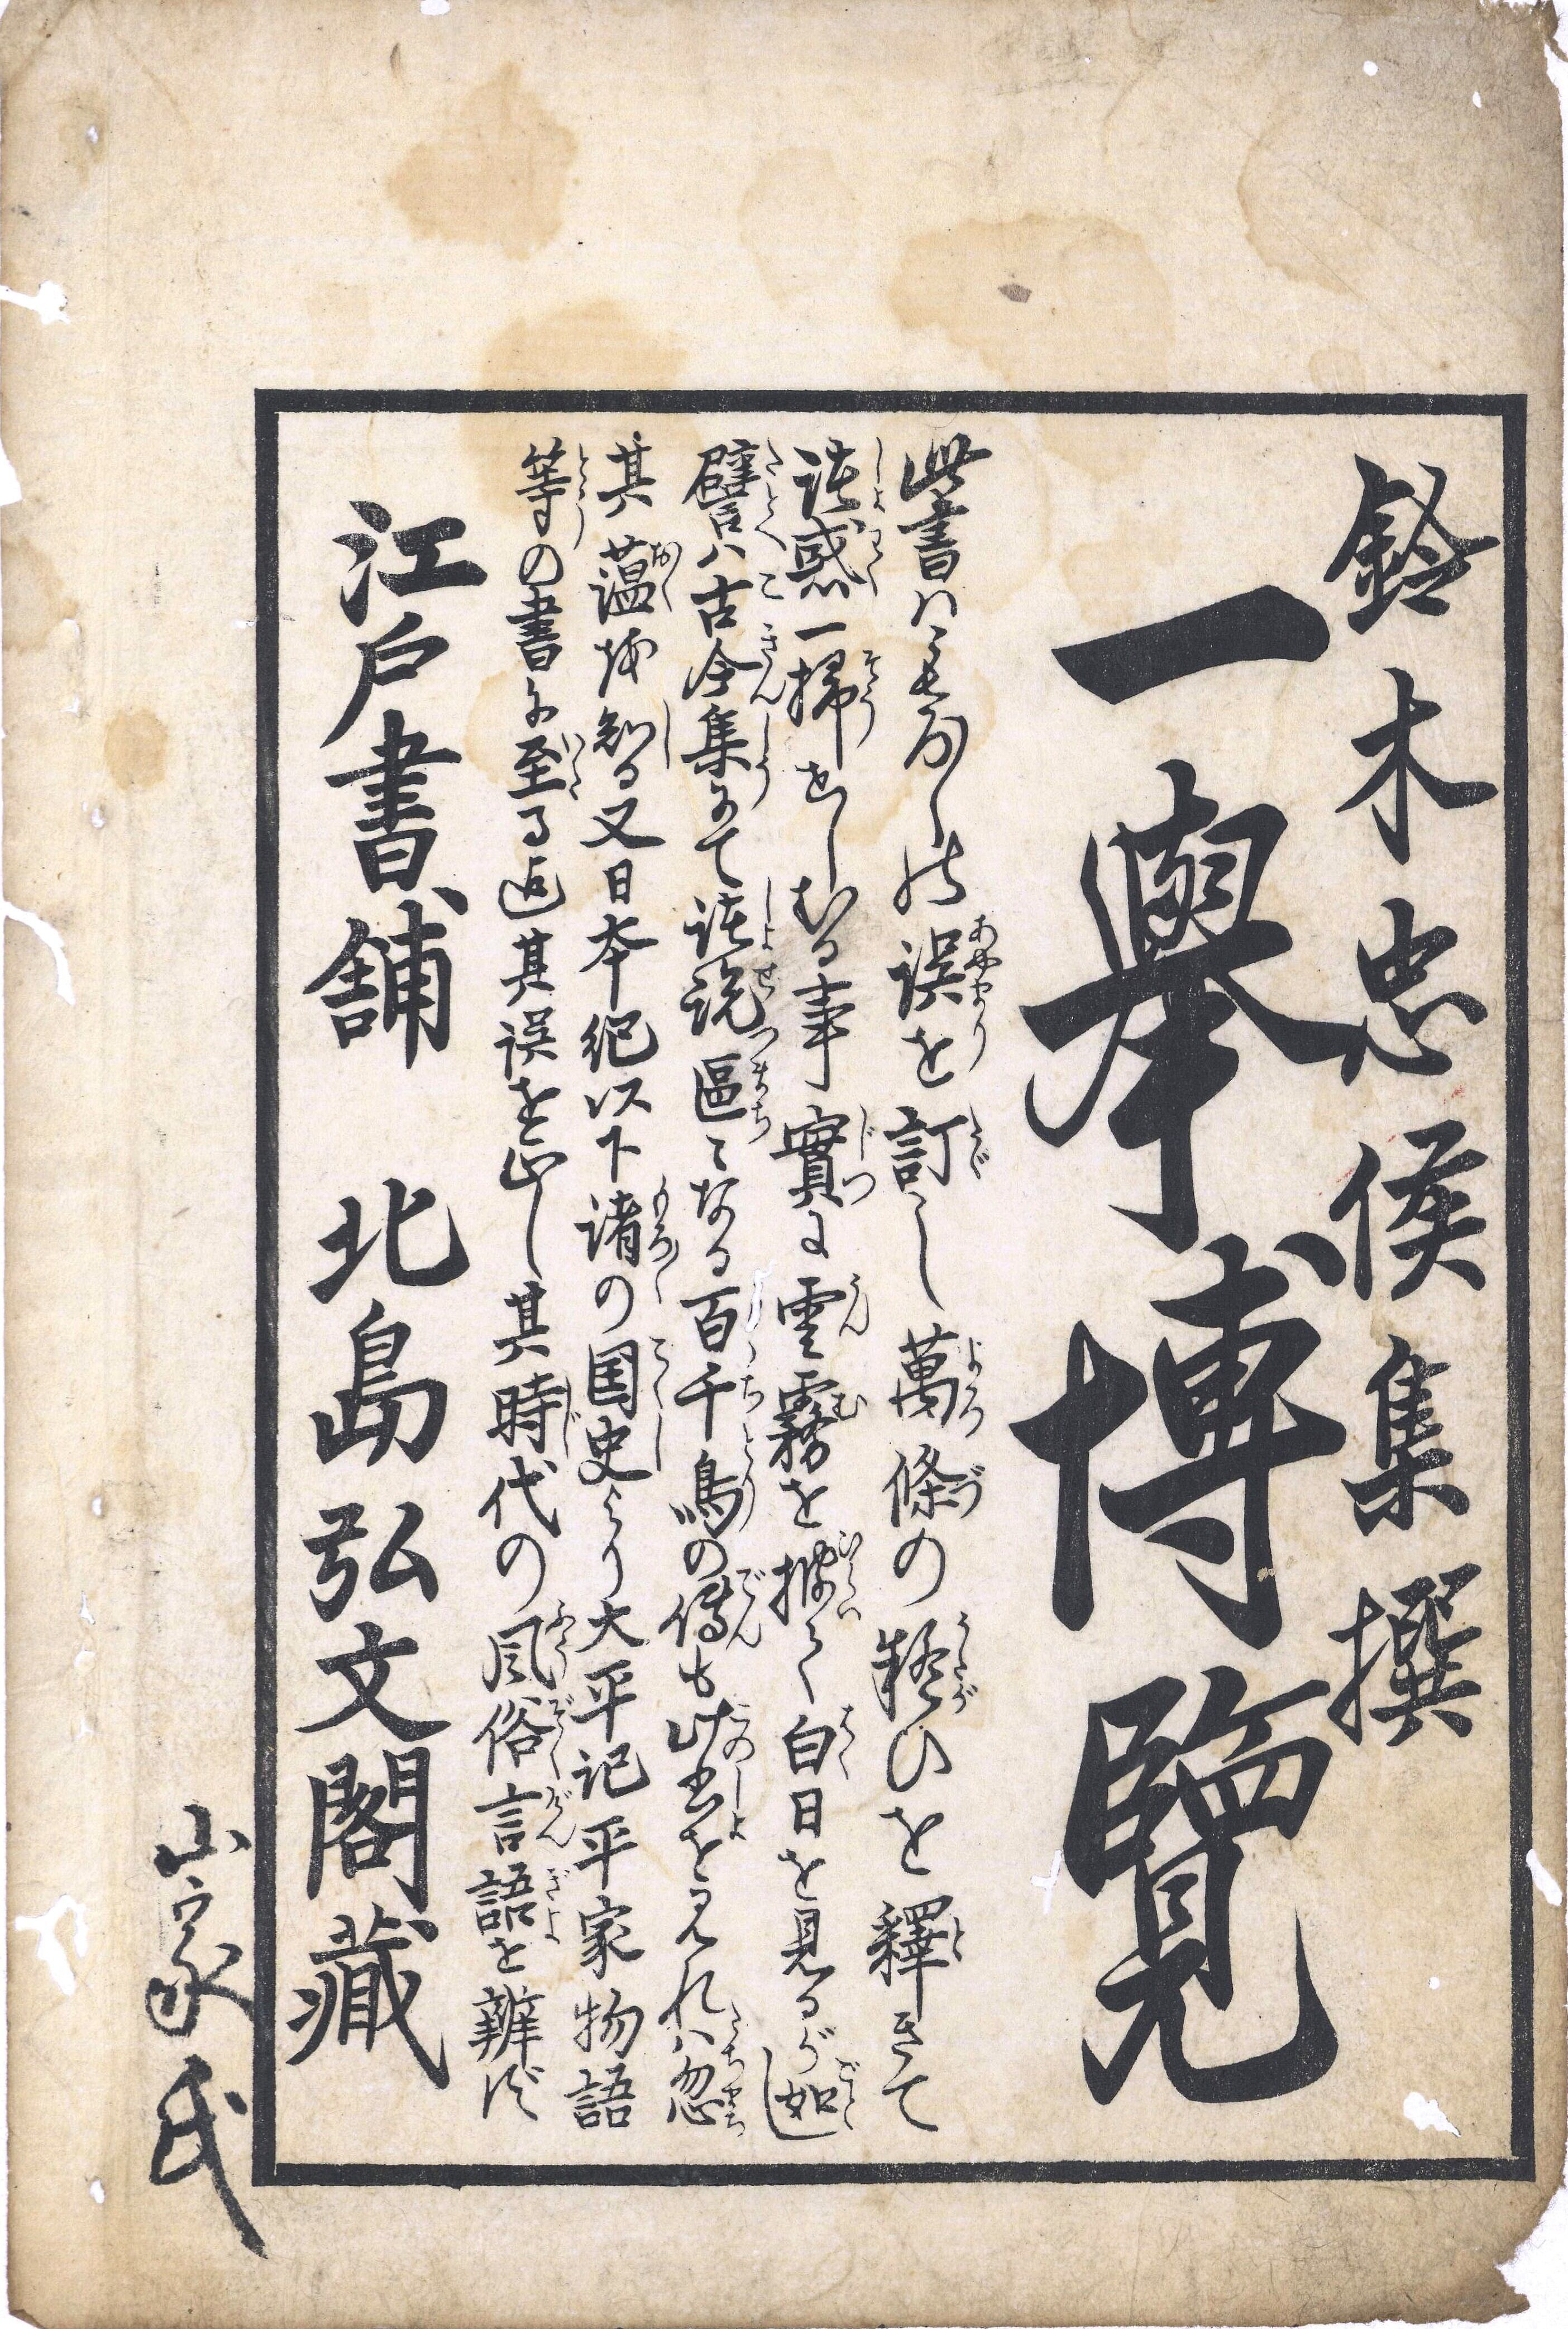 鈴木忠侯集撰
一擧博覽
此書ハこもろ〳〵の誤を訂し萬條の疑ひを釋きて
諸惑一掃せしむる事實に雲霧を披て白日を見るが如し
譬ハ古今集にて諸説區〻なる百千鳥の傳も此書を見れハ忽
其蘊奥を知る又日本紀以下諸の国史より大平記平家物語
等の書に至る迄其誤を正し其時代の風俗言語を辨ず
江戸書舗 北島弘文閣藏
山家氏